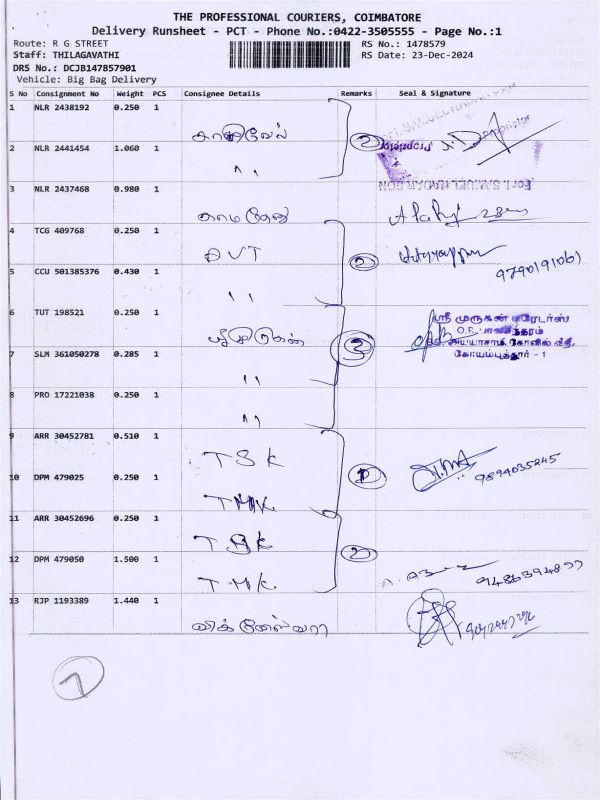 THE PROFESSIONAL COURIERS, COIMBATORE
Delivery Runsheet - PCT - Phone No.:0422-3505555 - Page No.:1
Route: R G STREET
RS No.: 1478579
Staff: THILAGAVATHI
RS Date: 23-Dec-2024
DRS No.: DCJB147857901
Vehicle: Big Bag Delivery
S No Consignment No Weight PCS Consignee Details Remarks Seal & Signature
1 NLR 2438192 0.250 1
2 NLR 2441454 1.060 1 ,,
Proprietor
For I. SAMUEL NADAR SON
3 NLR 2437468 0.980 1
4 TCG 409768 0.250 1 AVT
9790191061
5 CCU 501385376 0.430 1 ,,
6 TUT 198521 0.250 1 ஸ்ரீ முருகன்
ஸ்ரீ முருகன் டிரேடர்ஸ்
கோயம்புத்தூர் - 1
7 SLM 361050278 0.285 1 ,,
8 PRO 17221038 0.250 1 ,,
9 ARR 30452781 0.510 1 TSK
9894035245
10 DPM 479025 0.250 1 TMK.
11 ARR 30452696 0.250 1 TSK 2
12 DPM 479050 1.500 1 TMK.
13 RJP 1193389 1.440 1 விக்னேஸ்வரா
2